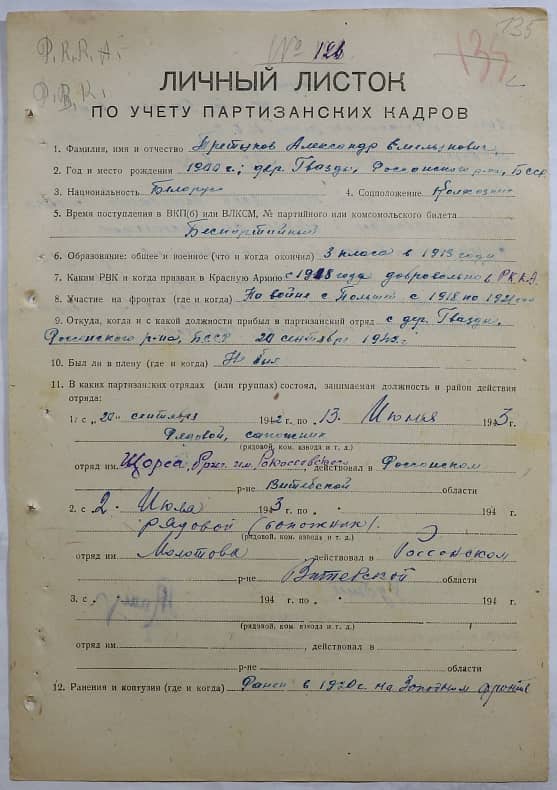 135
Р.К.К.А.
№ 126
135
Р.В.К.
ЛИЧНЫЙ ЛИСТОК
ПО УЧЕТУ ПАРТИЗАНСКИХ КАДРОВ
1. Фамилия, имя и отчество Александр Емельянович
2. Год и место рождения 1900 г.; дер. Гвозды, Россонского р-на, БССР
3. Национальность Беларус 4. Соцположение Колхозник
5. Время поступления в ВКП(б) или ВЛКСМ, № партийного или комсомольского билета
Беспартийный
6. Образование: общее и военное (что и когда окончил) 3 класа в 1913 году
7. Каким РВК и когда призван в Красную Армию с 1918 года добровольно в РККА
8. Участие на фронтах (где и когда) На войне с Польшей с 1918 по 1921 год
9. Откуда, когда и с какой должности прибыл в партизанский отряд с дер. Гвозды,
Россонского р-на, БССР 20 сентября 1942 г.
10. Был ли в плену (где и когда) Не был
11. В каких партизанских отрядах (или группах) состоял, занимаемая должность и район действия
отряда:
1. с „20" сентября 1942 г. по „13. Июня 1943 г.
Рядовой, сапожник
(рядовой, ком. взвода и т. д.)
отряд им. Щорса, бриг. им. Рокоссовского, действовал в Россонском
р-не Витебской области
2. с 2. Июля 1943 г. по „ 194 г.
рядовой (сапожник).
(рядовой, ком. взвода и т. д.)
отряд им. Молотова, действовал в Россонском
р-не Витебской области
3. с „ 194 г. по „ 194 г.
(рядовой, ком. взвода и т. д.)
отряд им. , действовал в
р-не области
12. Ранения и контузии (где и когда) Ранен в 1920 г. на Западном фронте